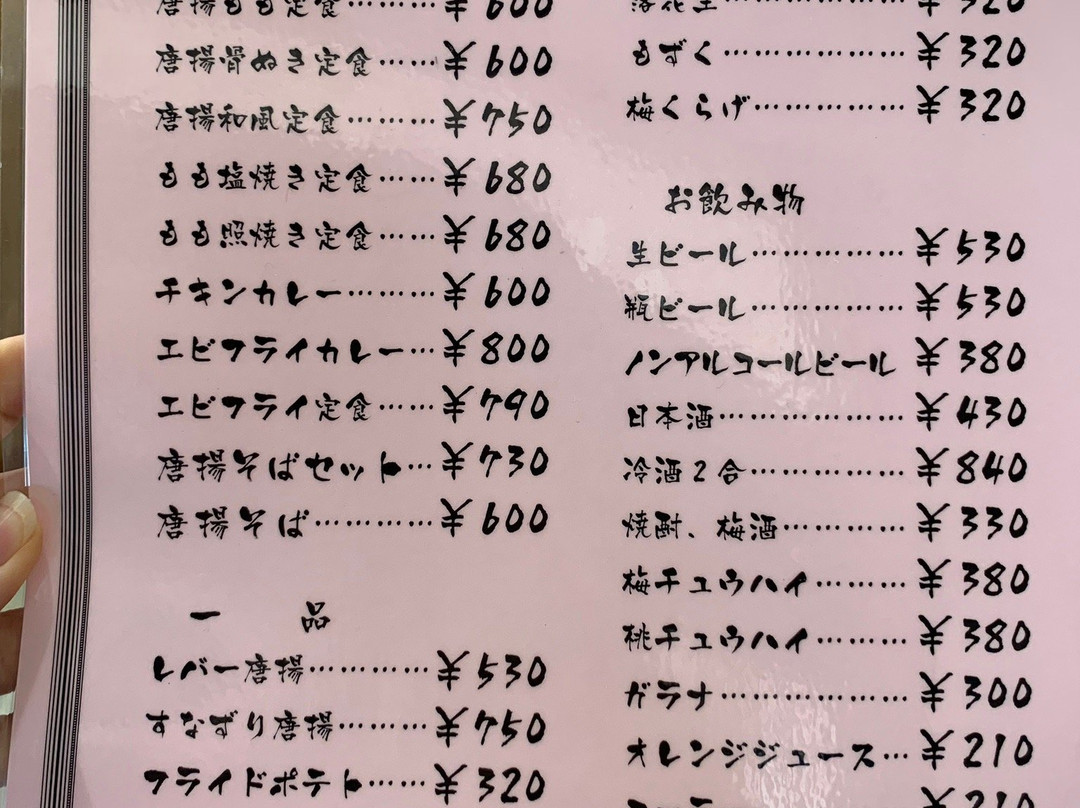 唐揚もも定食………… ¥600
唐揚骨ぬき定食…… ¥600
唐揚和風定食……… ¥750
もも塩焼き定食…… ¥680
もも照焼き定食…… ¥680
チキンカレー……… ¥600
エビフライカレー… ¥800
エビフライ定食…… ¥790
唐揚そばセット… ¥730
唐揚そば………… ¥600
一 品
レバー唐揚………… ¥530
すなずり唐揚……… ¥750
フライドポテト…… ¥320
落花生……………… ¥320
もずく……………… ¥320
梅くらげ…………… ¥320
お飲み物
生ビール…………… ¥530
瓶ビール…………… ¥530
ノンアルコールビール ¥380
日本酒……………… ¥430
冷酒2合…………… ¥840
焼酎、梅酒………… ¥330
梅チュウハイ……… ¥380
桃チュウハイ……… ¥380
ガラナ……………… ¥300
オレンジジュース… ¥210
¥210